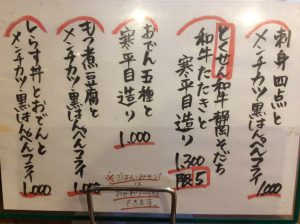 刺身四点と
メンチカツ・黒はんぺんフライ
1,000
とくせん和牛静岡そだち
和牛たたきと
寒平目造り
1,300
限5
おでん五種と
寒平目造り
1,000
もつ煮豆腐と
メンチカツ・黒はんぺんフライ
1,000
しらす丼とおでんと
メンチカツ・黒はんぺんフライ
1,000
※ごはん・みそ汁
は
おかわり一回
できます。